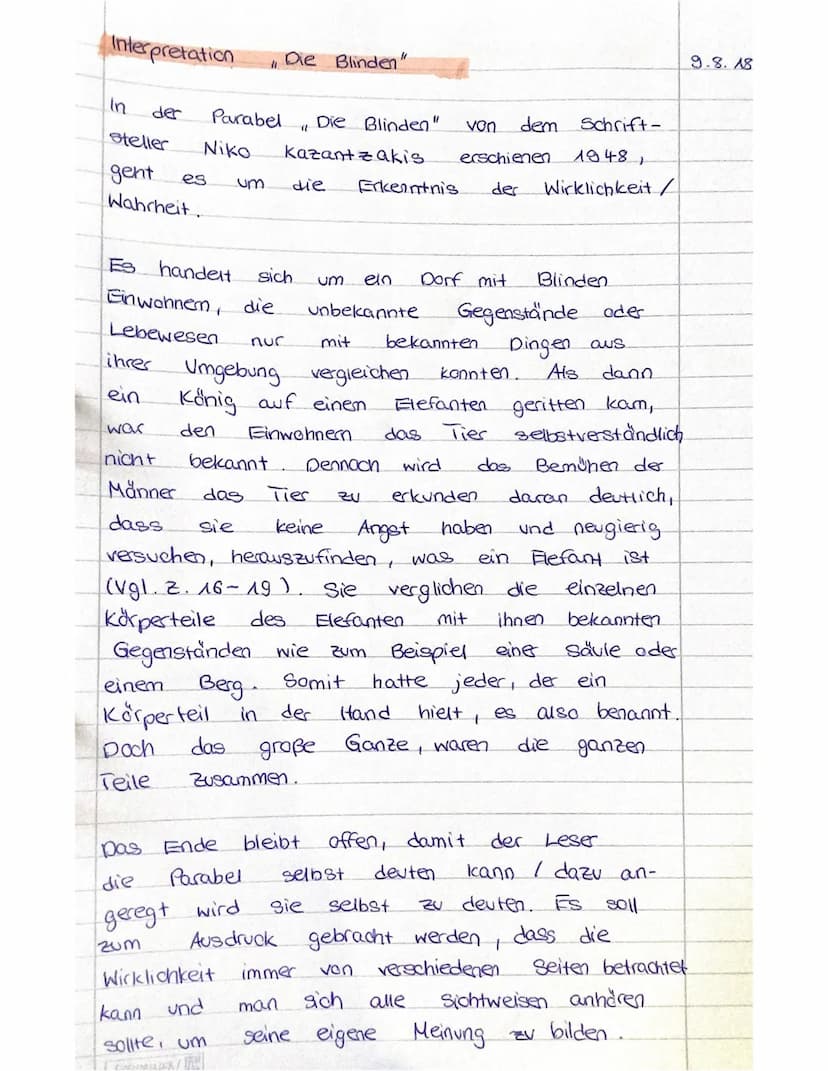 Interpretation „Die Blinden"
9.8.18
In der Parabel „Die Blinden" von dem Schrift-
steller Niko Kazantzakis erschienen 1948,
geht es um die Erkenntnis der Wirklichkeit/
Wahrheit.
Es handelt sich um ein Dorf mit Blinden
Einwohnern, die unbekannte Gegenstände oder
Lebewesen nur mit bekannten Dingen aus
ihrer Umgebung vergleichen konnten. Als dann
ein König auf einem Elefanten geritten kam,
war den Einwohnern das Tier selbstverständlich
nicht bekannt. Dennoch wird das Bemühen der
Männer das Tier zu erkunden daran deutlich,
dass sie keine Angst haben und neugierig
versuchen, herauszufinden, was ein Elefant ist
(Vgl. Z. 16-19). Sie verglichen die einzelnen
Körperteile des Elefanten mit ihnen bekannten
Gegenständen wie zum Beispiel einer Säule oder
einem Berg. Somit hatte jeder, der ein
Körperteil in der Hand hielt, es also benannt.
Doch das große Ganze, waren die ganzen
Teile zusammen.
Das Ende bleibt offen, damit der Leser
die Parabel selbst deuten kann / dazu an-
geregt wird sie selbst zu deuten. Es soll
zum Ausdruck gebracht werden, dass die
Wirklichkeit immer von verschiedenen Seiten betrachtet
kann und man sich alle Sichtweisen anhören
sollte, um seine eigene Meinung zu bilden.